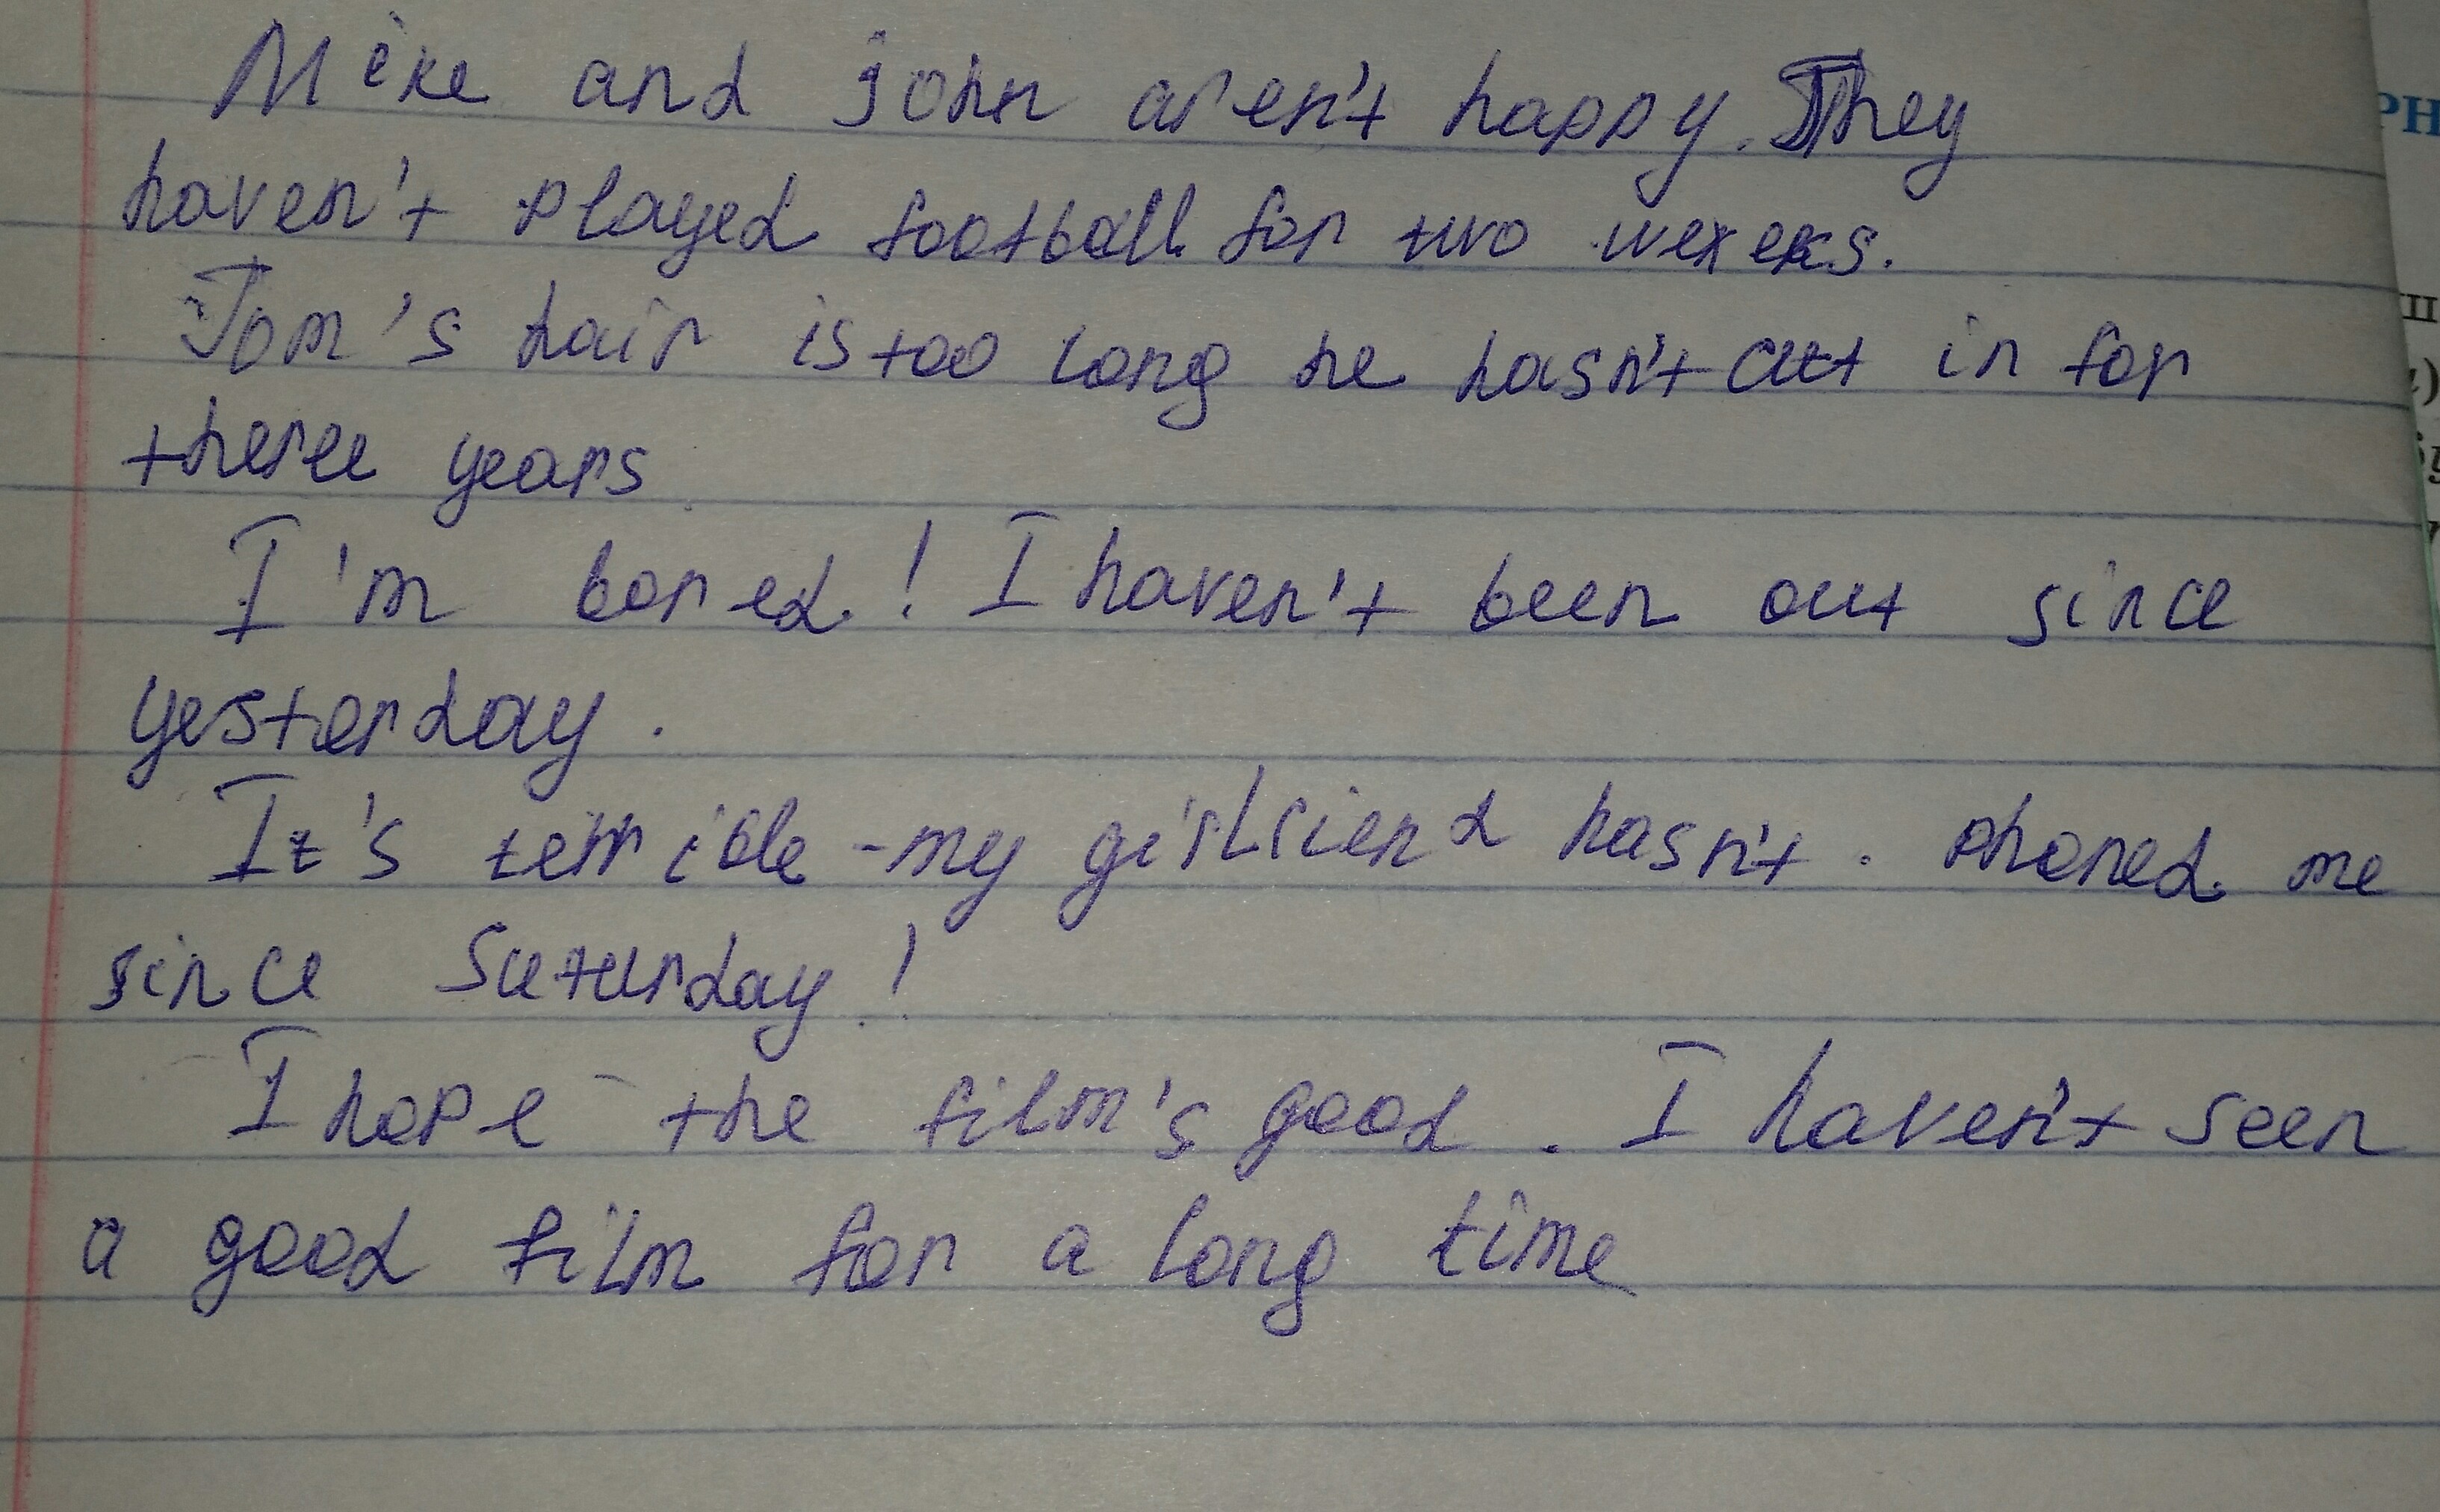 Mike and john aren't happy. They
haven't played football for two wexeks.
Tom's hair is too long he hasn't cut in for
theree years
I'm bored! I haven't been out since
yesterday.
It's terrible - my girlfriend hasn't. phoned me
since Saturday!
I hope the film's good. I haven't seen
a good film for a long time
РН